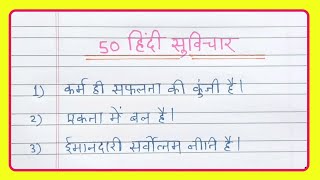 50 हिंदी सुविचार
1) कर्म ही सफलता की कुंजी है।
2) एकता में बल है।
3) ईमानदारी सर्वोत्तम नीति है।